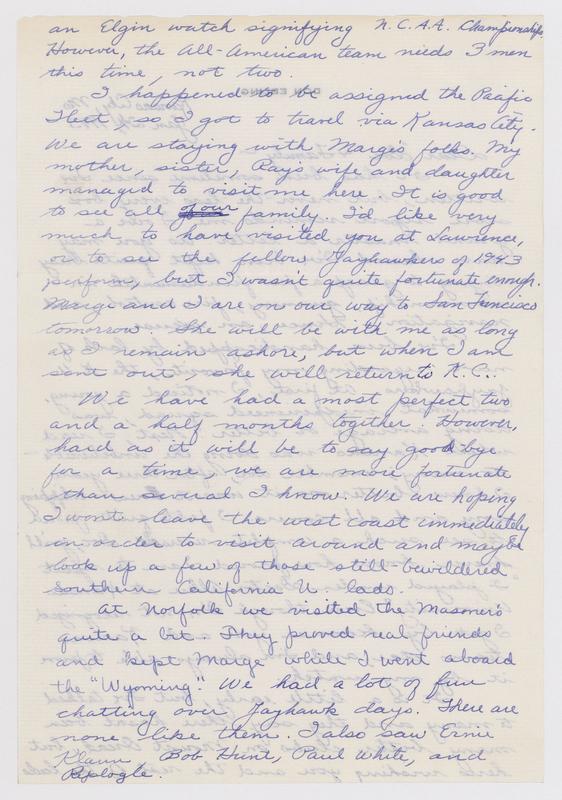 an Elgin watch signifying N.C.A.A. Championship.
However, the All-American team needs 3 men
this time, not two.
I happened to be assigned the Pacific
Fleet, so I got to travel via Kansas City.
We are staying with Marge's folks. My
mother, sister, Ray's wife and daughter
managed to visit me here. It is good
to see all of our family. I'd like very
much to have visited you at Lawrence,
or to see the fellow Jayhawkers of 1943
perform, but I wasn't quite fortunate enough.
Marge and I are on our way to San Francisco
tomorrow. She will be with me as long
as I remain ashore, but when I am
sent out, she will return to K.C..
We have had a most perfect two
and a half months together. However,
hard as it will be to say good bye
for a time, we are more fortunate
than several I know. We are hoping
I wont leave the west coast immediately
in order to visit around and maybe
look up a few of those still bewildered
Southern California U. lads.
At Norfolk we visited the
quite a bit. They proved real friends
and "kept Marge" while I went aboard
the "Wyoming". We had a lot of fun
chatting over "Jayhawk days." There are
none like them. I also saw Ernie
Klann, Bob Hunt, Paul White, and
Replogle.